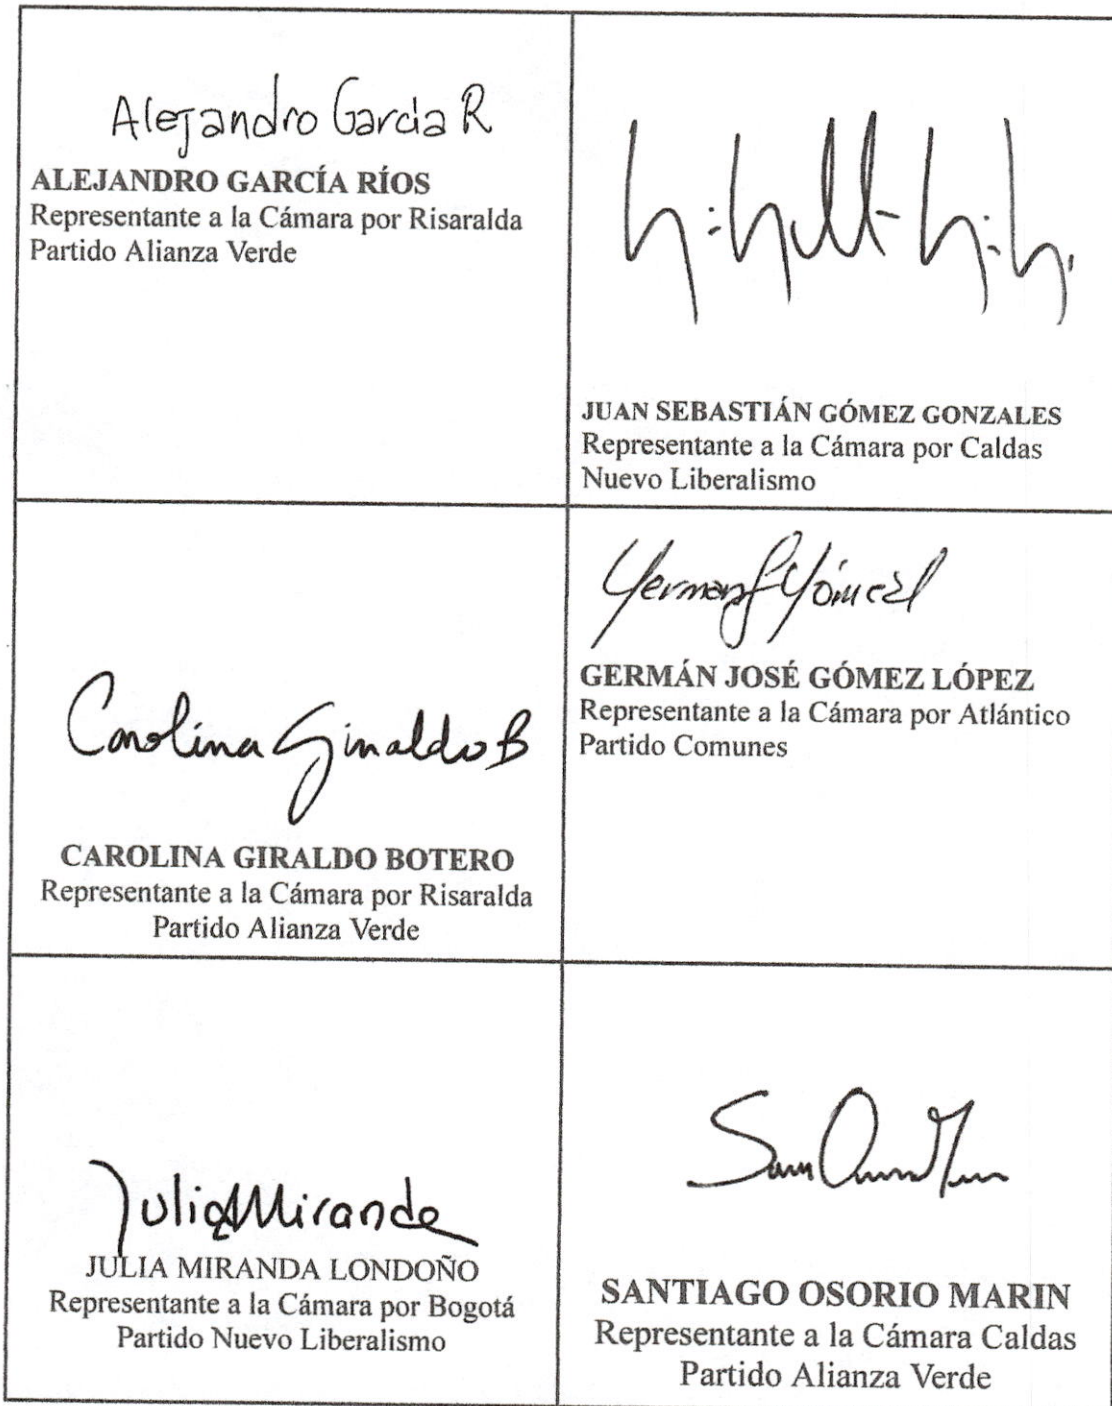 Alejandro Garcia R
ALEJANDRO GARCÍA RÍOS
Representante a la Cámara por Risaralda
Partido Alianza Verde
JUAN SEBASTIÁN GÓMEZ GONZALES
Representante a la Cámara por Caldas
Nuevo Liberalismo
Carolina Giraldo B
CAROLINA GIRALDO BOTERO
Representante a la Cámara por Risaralda
Partido Alianza Verde
GERMÁN JOSÉ GÓMEZ LÓPEZ
Representante a la Cámara por Atlántico
Partido Comunes
Julia Miranda
JULIA MIRANDA LONDOÑO
Representante a la Cámara por Bogotá
Partido Nuevo Liberalismo
SANTIAGO OSORIO MARIN
Representante a la Cámara Caldas
Partido Alianza Verde